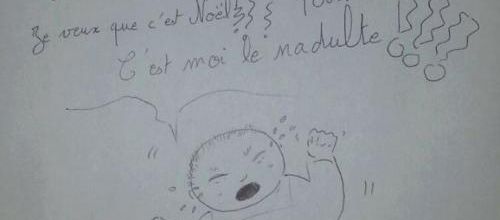 Je veux que c'est Noël !!!
C'est moi le nadulte !!!!